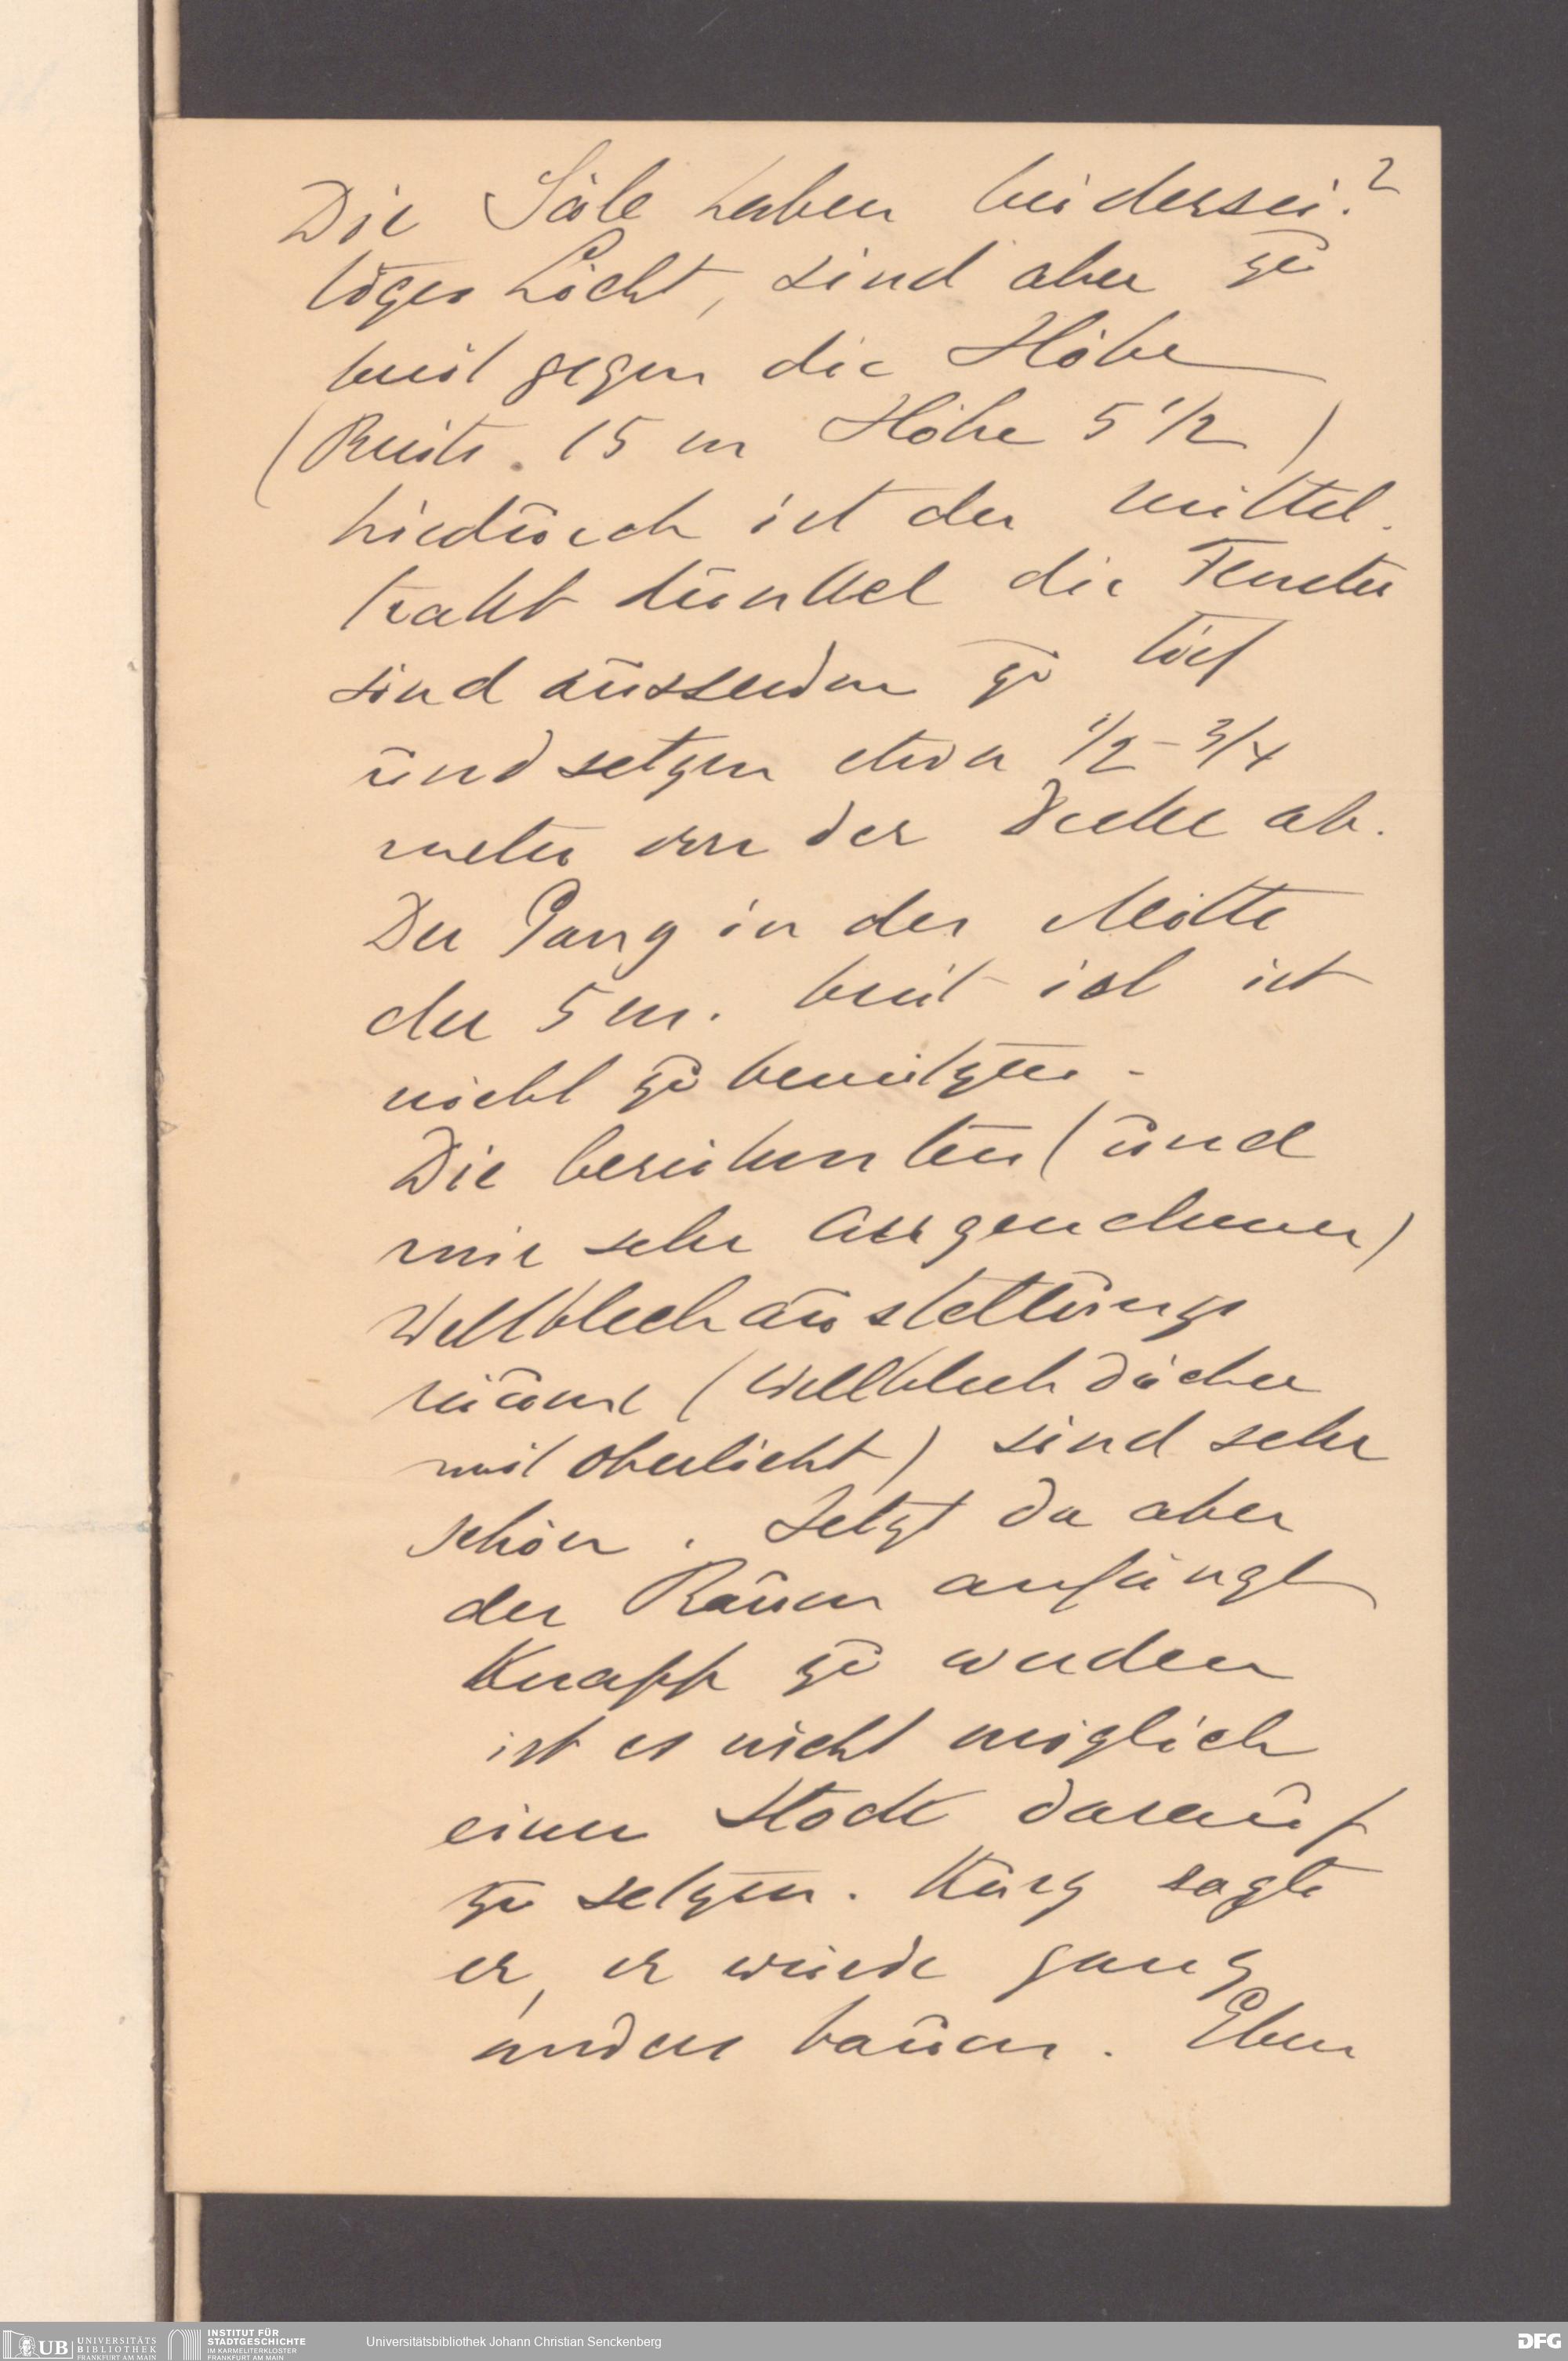 2
Die Säle haben beidersei-
tiges Licht, sind aber zu
breit gegen die Höhe
(Breite. 15 m Höhe 5 1/2)
hiedurch ist der mittel-
trakt dunkel die Fenster
sind ausserdem zu tief
und setzen etwa 1/2 - 3/4
meter von der Decke ab.
Der Gang in der Mitte
der 5 m. breit ist ist
nicht zu benützen.
Die berühmten (und
mir sehr angenehmen)
Wellblechaustellungs
räume (Wellblechdächer
mit Oberlicht) sind sehr
schön. Jetzt da aber
der Raum anfängt
knapp zu werden
ist es nicht möglich
einen Stock darauf
zu setzen. Kurz sagte
er, er würde ganz
anders bauen. Eben
UB UNIVERSITÄTS BIBLIOTHEK FRANKFURT AM MAIN
INSTITUT FÜR STADTGESCHICHTE IM KARMELITERKLOSTER FRANKFURT AM MAIN
Universitätsbibliothek Johann Christian Senckenberg
DFG